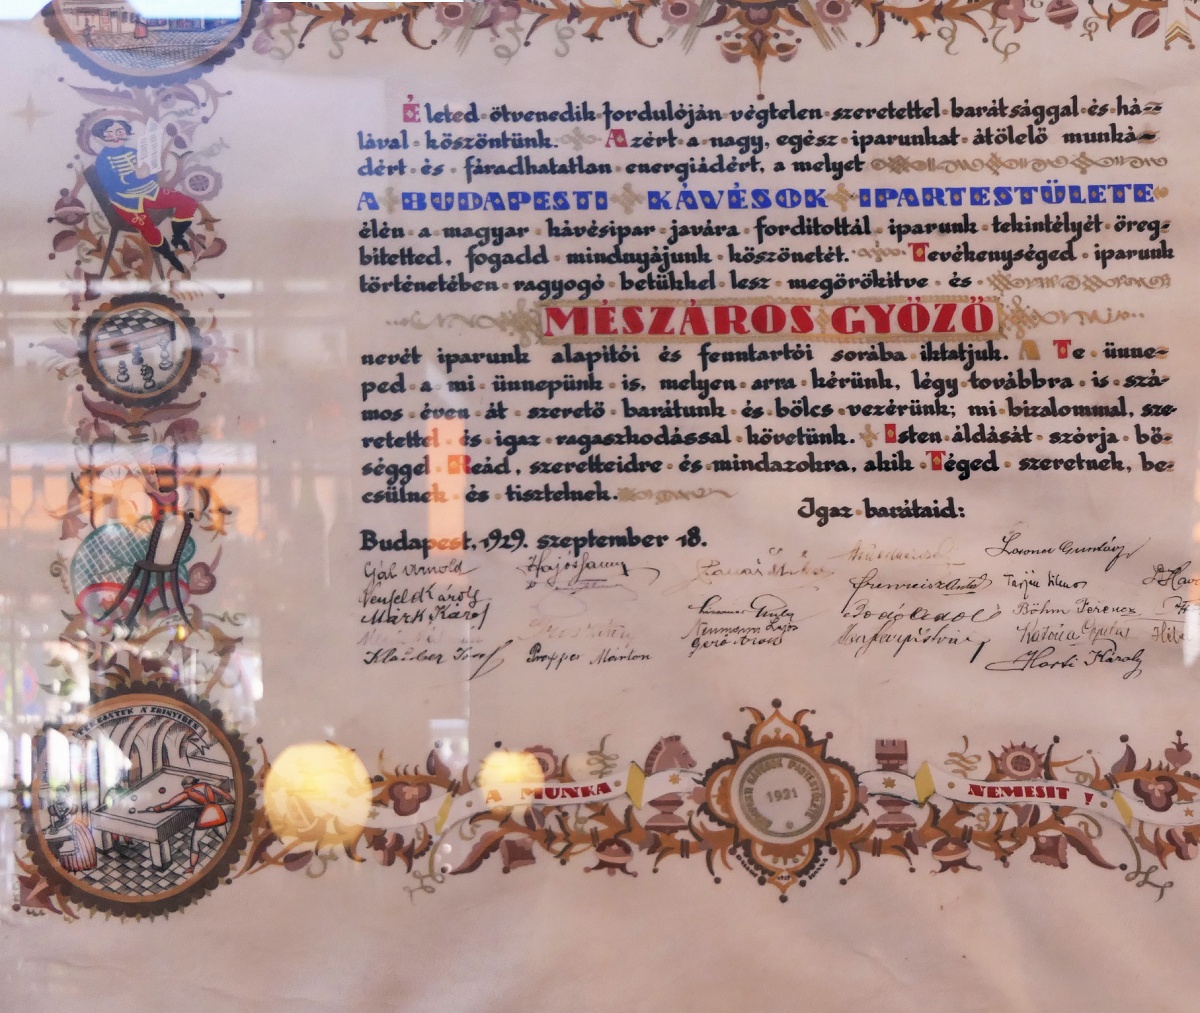 Életed ötvenedik fordulóján végtelen szeretettel barátsággal és há-
lával köszöntünk. Azért a nagy, egész iparunkat átölelő munká-
dért és fáradhatatlan energiádért, a melyet
A BUDAPESTI KÁVÉSOK IPARTESTÜLETE
élén a magyar kávésipar javára fordítottál iparunk tekintélyét öreg-
bítetted, fogadd mindnyájunk köszönetét. Tevékenységed iparunk
történetében ragyogó betükkel lesz megörökitve és
MÉSZÁROS GYŐZŐ
nevét iparunk alapitói és fenntartói sorába iktatjuk. A Te ünne-
ped a mi ünnepünk is, melyen arra kérünk, légy továbbra is szá-
mos éven át szerető barátunk és bölcs vezérünk; mi bizalommal, sze-
retettel és igaz ragaszkodással követünk. Isten áldását szórja bő-
séggel Reád, szeretteidre és mindazokra, akik Téged szeretnek, be-
csülnek és tisztelnek.
Igaz barátaid:
Budapest, 1929. szeptember 18.
Gál Arnold
Hajós
Neufeld Károly
Márk Károly
Böhm Ferencz
Neumann Lajos
Klauber József
Propper Márton
Gerő
Harti Károly
A ZRINYIBEN
A MUNKA
1921
NEMESIT !